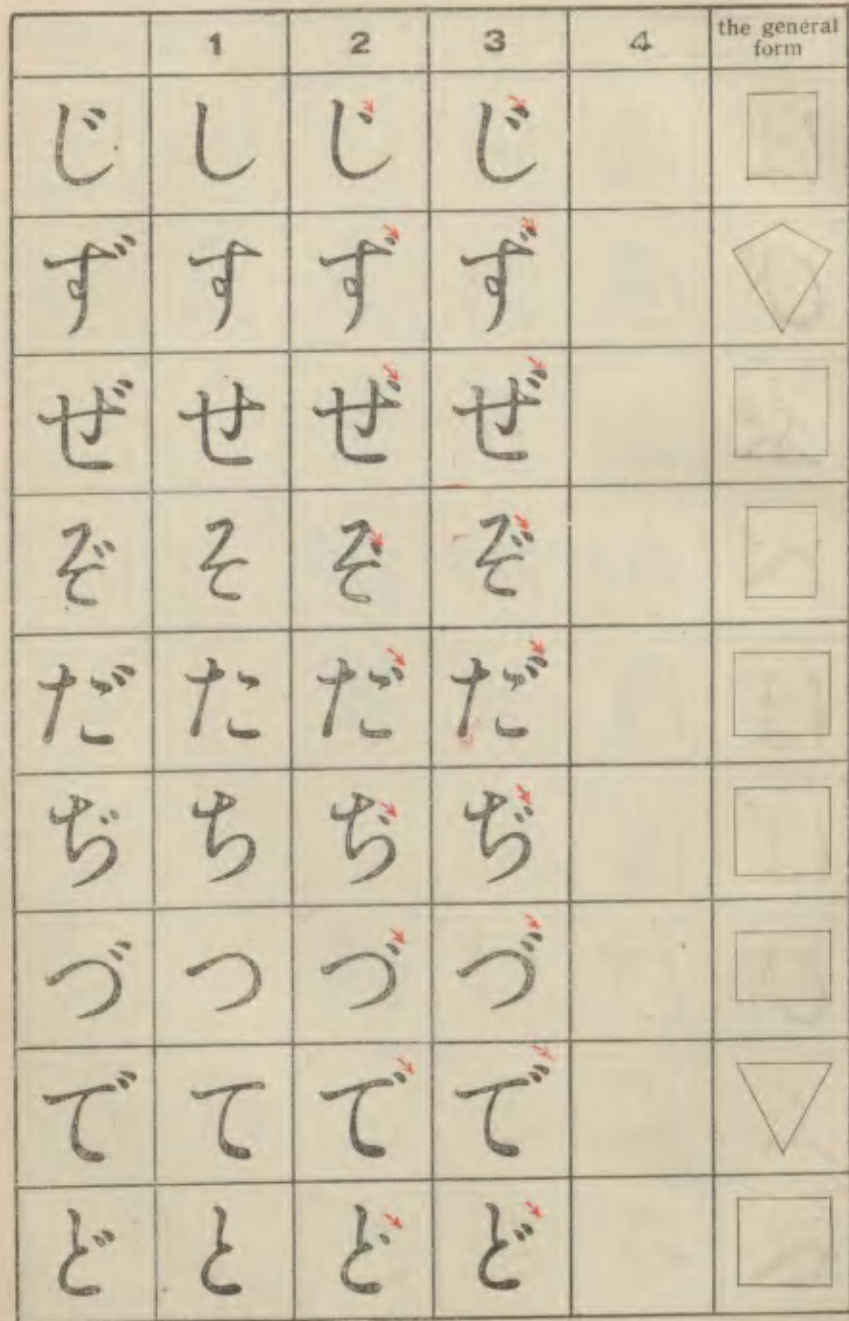 1 2 3 4 the general form
じ し じ じ
ず す ず ず
ぜ せ ぜ ぜ
ぞ そ ぞ ぞ
だ た だ だ
ぢ ち ぢ ぢ
づ つ づ づ
で て で で
ど と ど ど